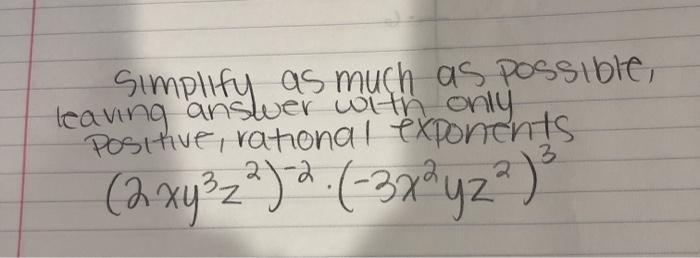 Simplify as much as possible,
leaving answer with only
Positive, rational exponents
(2xy³z²)⁻² · (-3x²yz²)³